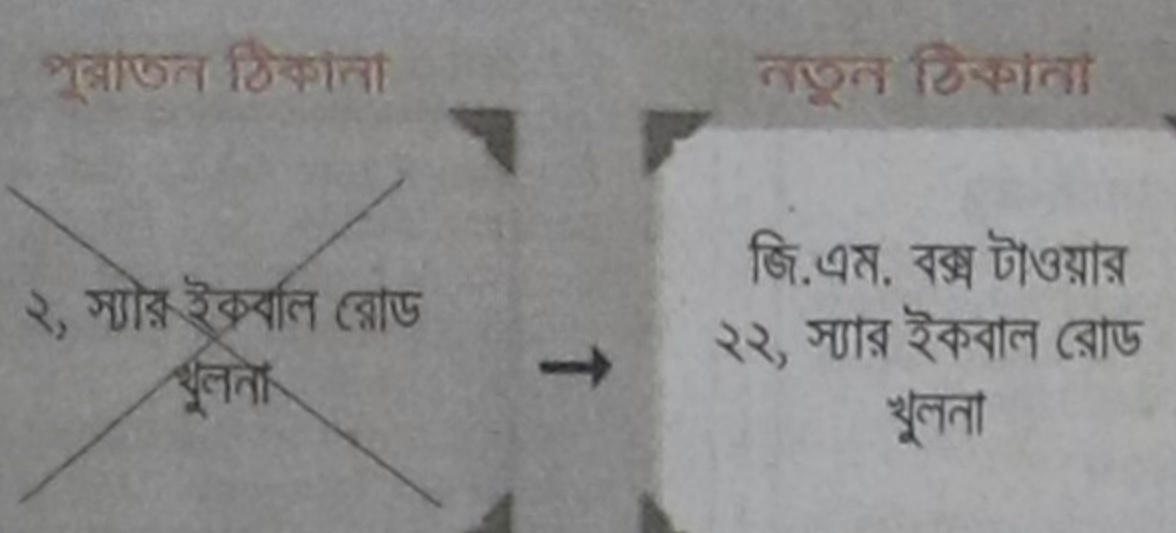 পুরাতন ঠিকানা
২, স্যার ইকবাল রোড
খুলনা
নতুন ঠিকানা
জি.এম. বক্স টাওয়ার
২২, স্যার ইকবাল রোড
খুলনা